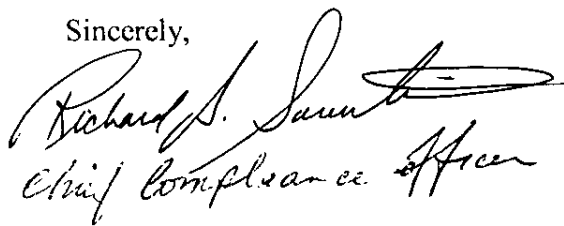 Sincerely,
Richard S.
Chief Compliance Officer